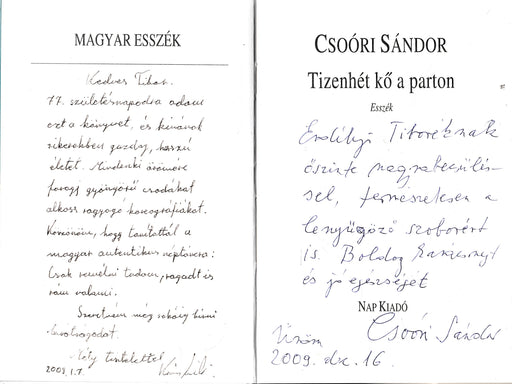 MAGYAR ESSZÉK
Kedves Tibor.
77. születésnapodra adom
ezt a könyvet, és kívánok
sikerekben gazdag, hosszú
életet. Mindenki örömére
faragj gyönyörű csodákat
alkoss ragyogó koreográfiákat.
Köszönöm, hogy tanítottál a
magyar autentikus néptáncra:
Csak remélni tudom, ragadt is
rám valami.
Szeretném még sokáig bírni
barátságodat.
Mély tisztelettel
2009. 1. 7.
CSOÓRI SÁNDOR
Tizenhét kő a parton
Esszék
Erdélyi Tiboréknak
őszinte nagyrabecülés-
sel, természetesen a
lenyűgöző szoborért
is. Boldog karácsonyt
és jó egészséget
NAP KIADÓ
Csoóri Sándor
2009. dec. 16.